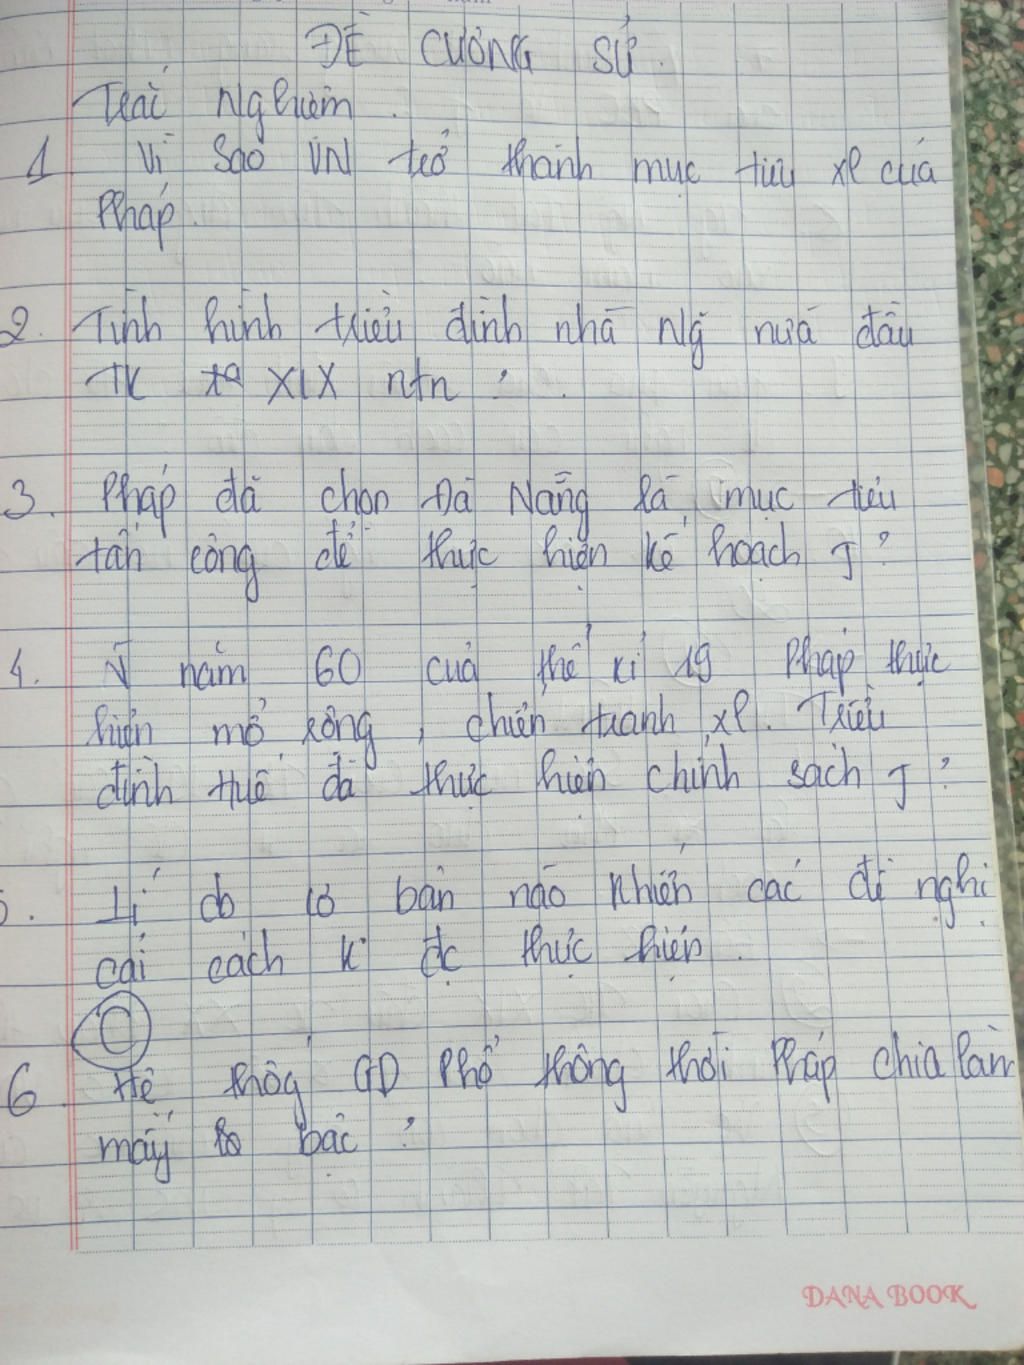 ĐỀ CƯƠNG SỬ.
Trắc Nghiệm.
1 Vì sao VN trở thành mục tiêu xl của
Pháp.
2. Tình hình triều đình nhà Ng nửa đầu
TK XIX ntn?
3. Pháp đã chọn Đà Nẵng là mục tiêu
tấn công để thực hiện kế hoạch j?
4. N~ năm 60 của thế kỉ 19 Pháp thực
hiện mở rộng, chiến tranh xl. Triều
đình Huế đã thực hiện chính sách j?
5. Lí do cơ bản nào khiến các đề nghị
cải cách k đc thực hiện.
C
6 Hệ thống GD phổ thông thời Pháp chia làm
mấy bậc?
DANA BOOK